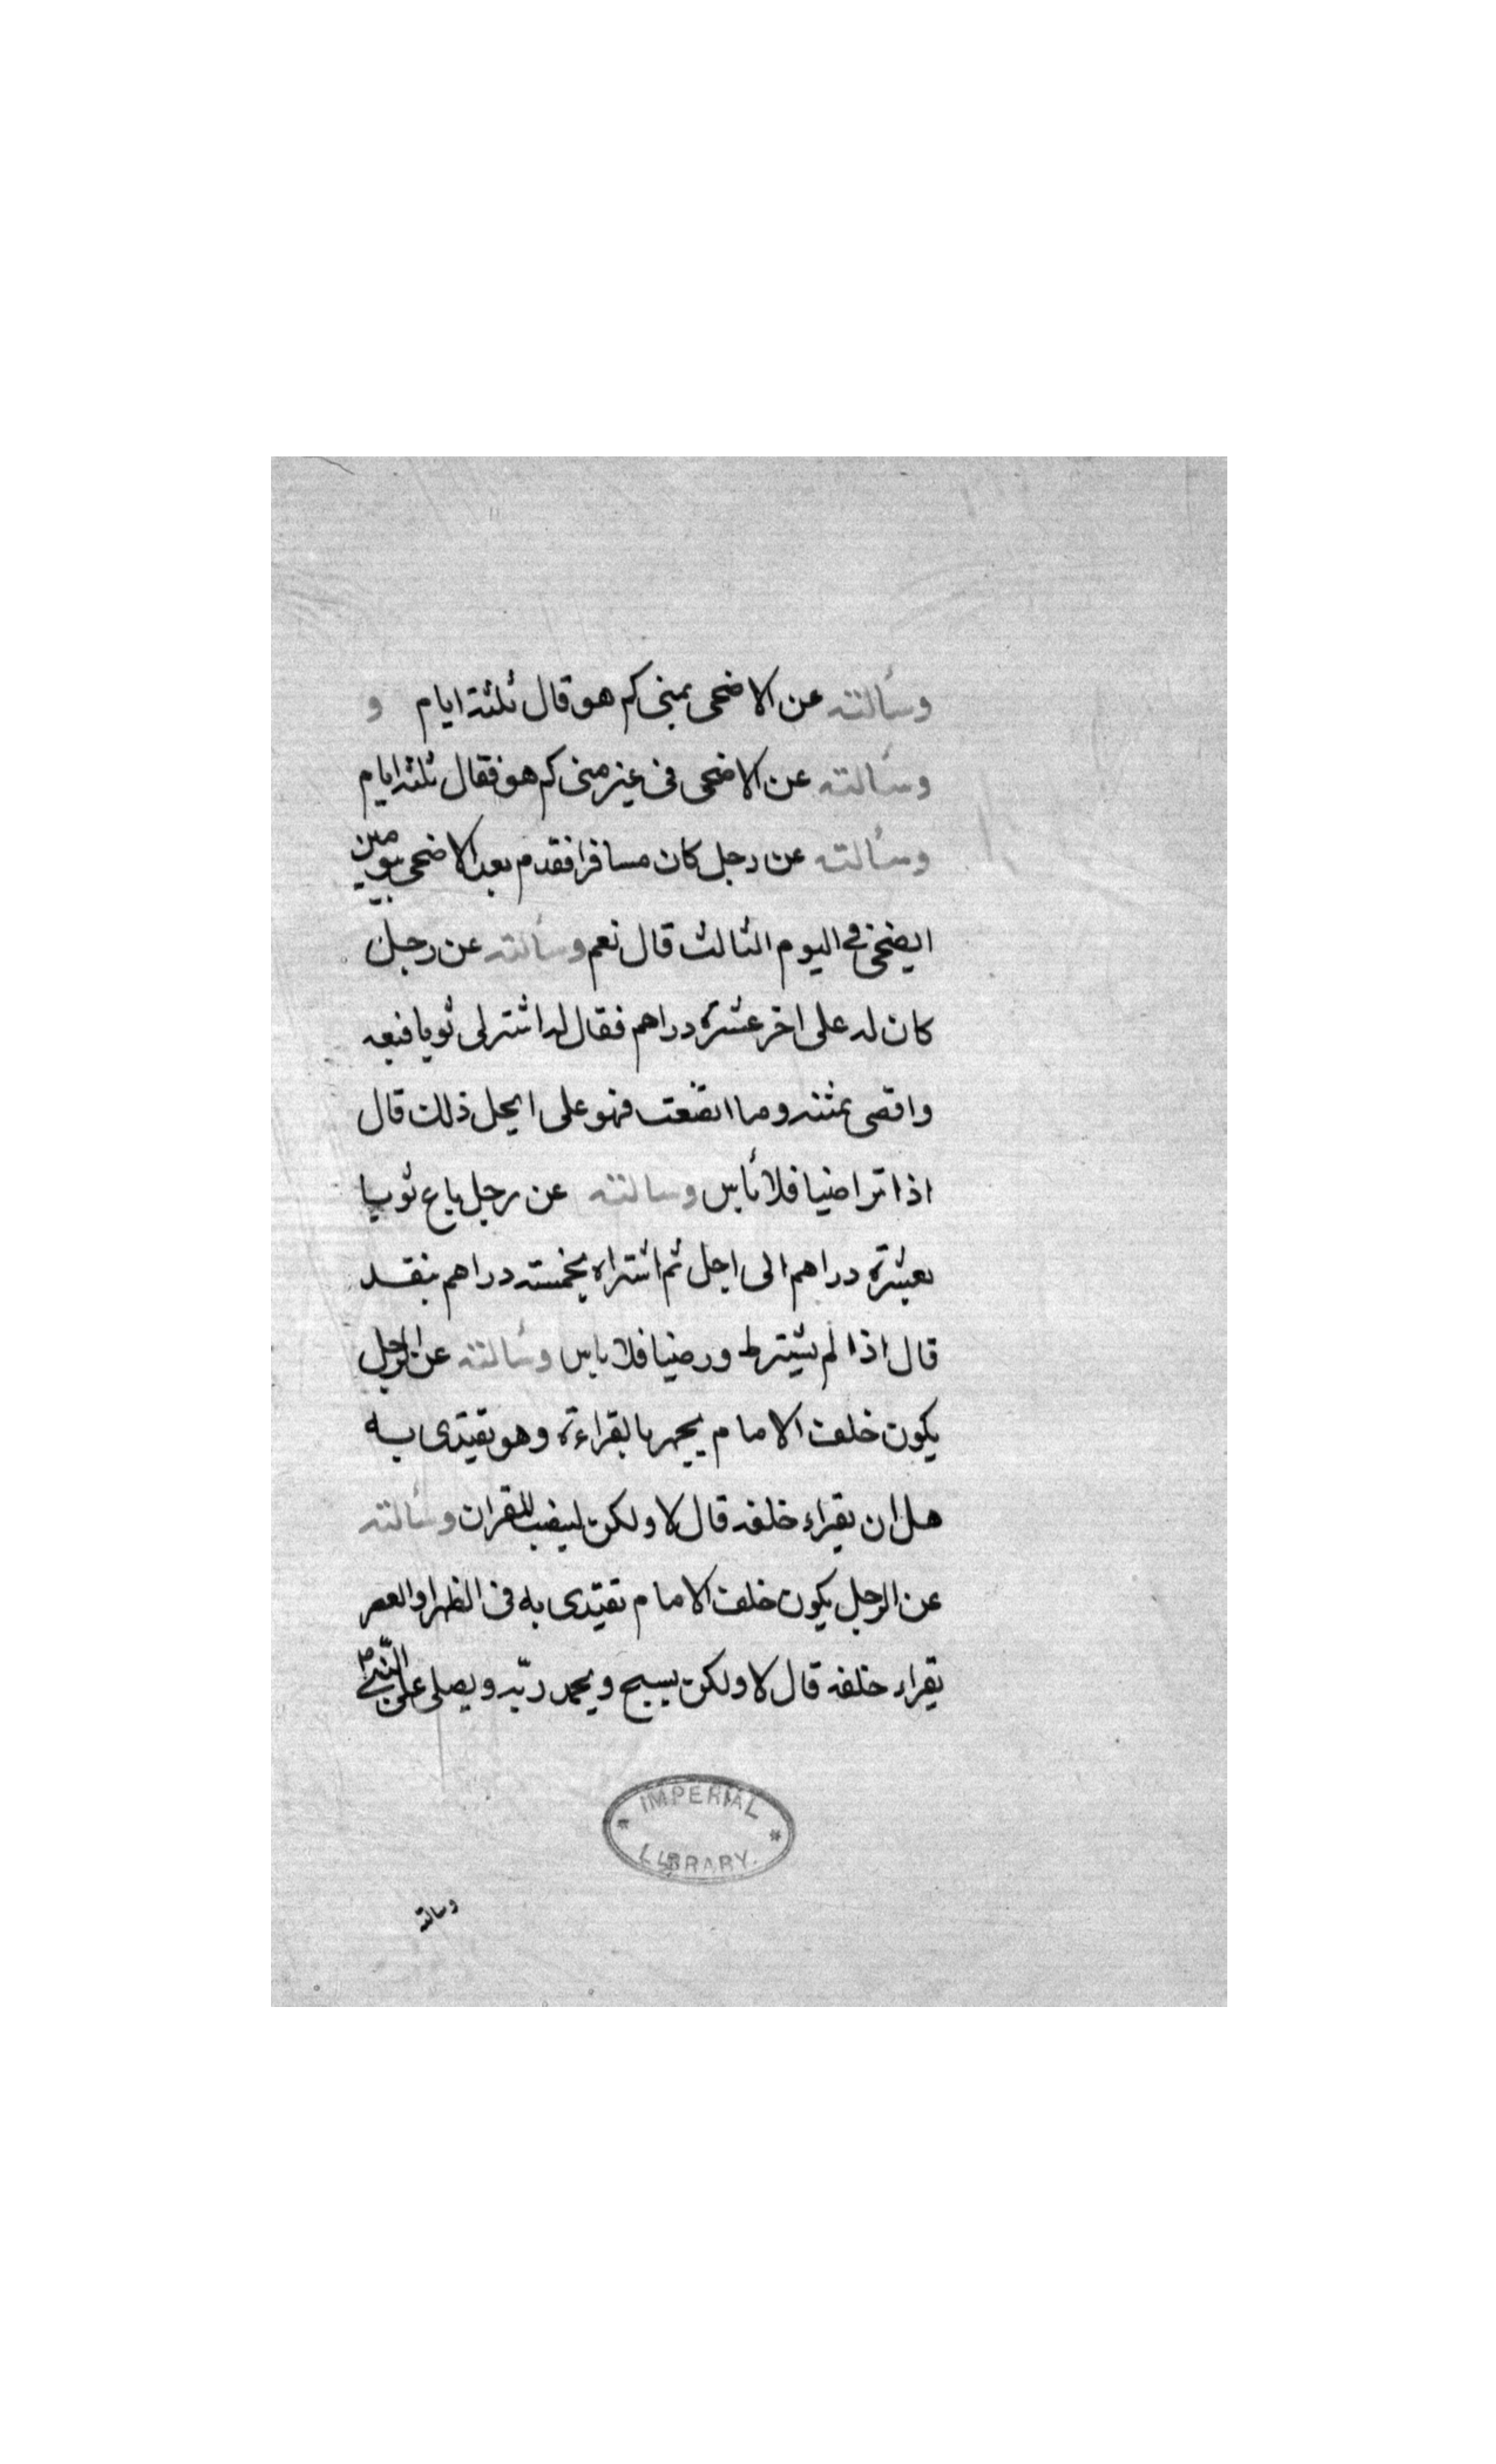 وسألته عن الاضحى بمنى كم هو قال ثلثة ايام و
وسألته عن الاضحى فى غير منى كم هو فقال ثلثه ايام
وسألته عن رجل كان مسافرا فقدم بعد الاضحى بيومين
ايضحى فى اليوم الثالث قال نعم وسألته عن رجل
كان له على اخر عشرة دراهم فقال له اشتر لى ثوبا فبعه
واقضى بثمنه وما اتضعت فهو على ايحل ذلك قال
اذا تراضيا فلا بأس وسالته عن رجل باع ثوبا
بعشرة دراهم الى اجل ثم اشتراه بخمسته دراهم بنقد
قال اذا لم يشترط ورضيا فلا باس وسألته عن الرجل
يكون خلف الامام يجهر بالقراءة وهو يقتدى به
هل ان يقراء خلفه قال لا ولكن لينصت للقران وسألته
عن الرجل يكون خلف الامام يقتدى به فى الظهر او العصر
يقراء خلفه قال لا ولكن يسبح ويحمد ربّه ويصلى على النّبى ص
IMPERIAL
LIBRARY.
وسالته